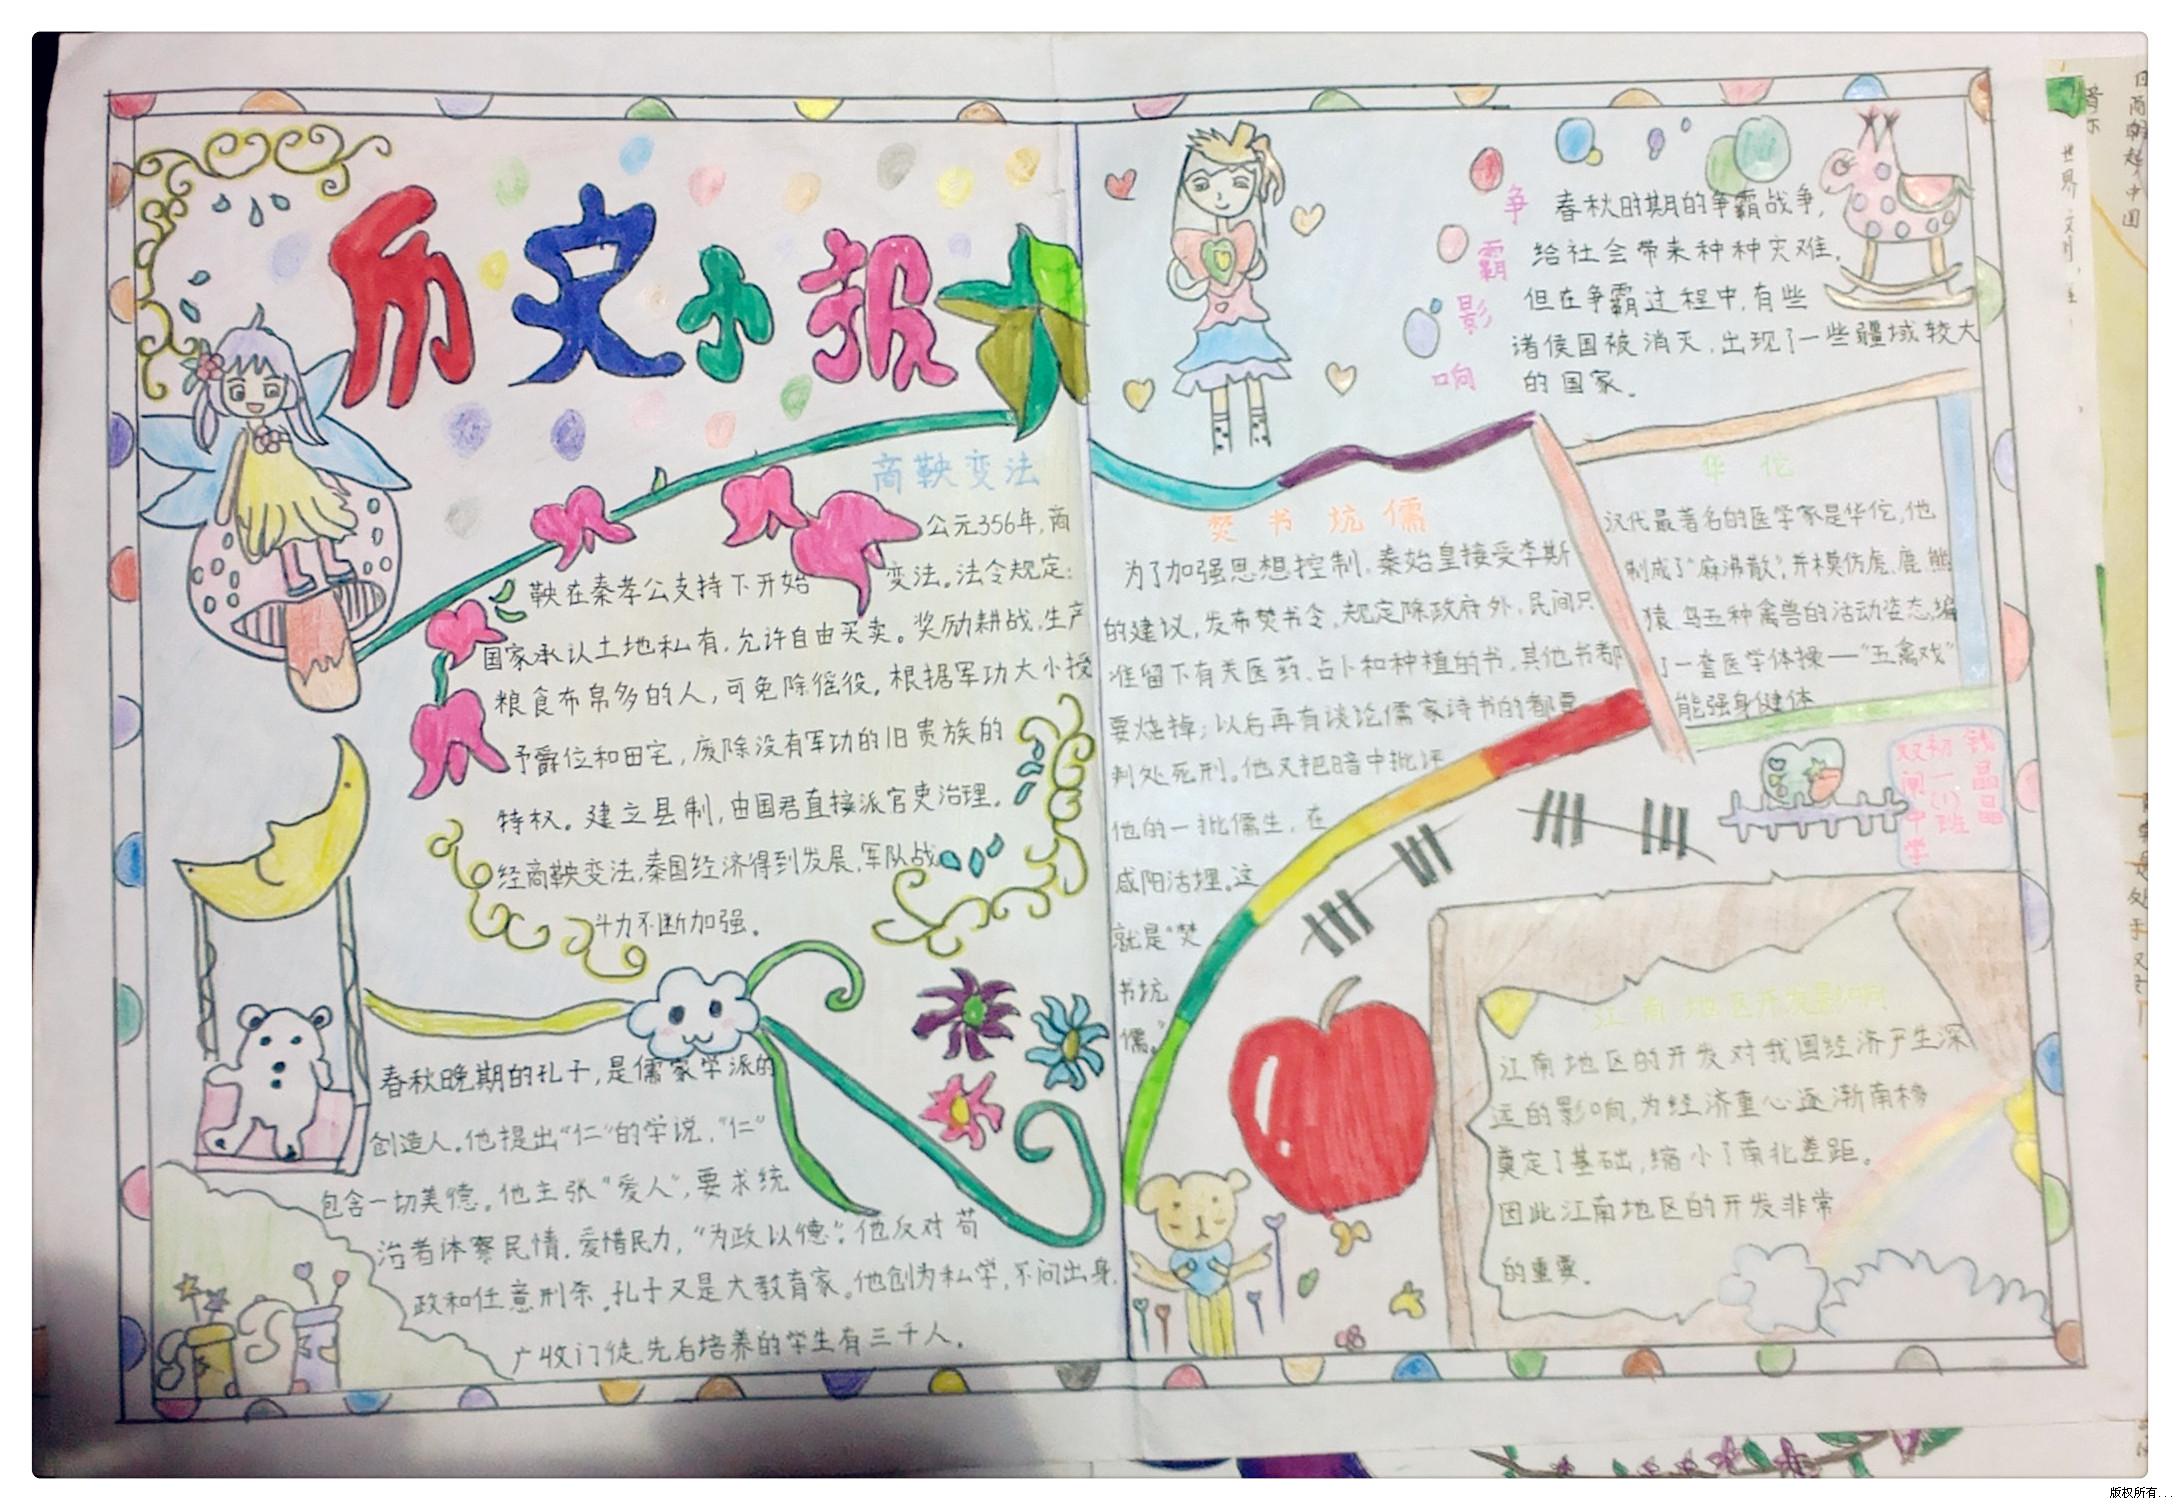 历史小报
商鞅变法
公元356年,商
鞅在秦孝公支持下开始
变法。法令规定:
国家承认土地私有,允许自由买卖。奖励耕战,生产
粮食布帛多的人,可免除徭役。根据军功大小授
予爵位和田宅,废除没有军功的旧贵族的
特权。建立县制,由国君直接派官吏治理。
经商鞅变法,秦国经济得到发展,军队战
斗力不断加强。
春秋晚期的孔子,是儒家学派的
创造人。他提出“仁”的学说,“仁”
包含一切美德。他主张“爱人”,要求统
治者体察民情,爱惜民力,“为政以德”。他反对苟
政和任意刑杀。孔子又是大教育家。他创为私学,不问出身,
广收门徒,先后培养的学生有三千人。
争霸影响
春秋时期的争霸战争,
给社会带来种种灾难。
但在争霸过程中,有些
诸侯国被消灭,出现了一些疆域较大
的国家。
焚书坑儒
为了加强思想控制,秦始皇接受李斯
的建议,发布焚书令,规定除政府外,民间只
准留下有关医药、占卜和种植的书,其他书都
要烧掉;以后再有谈论儒家诗书的都要
判处死刑。他又把暗中批评
他的一批儒生,在
咸阳活埋。这
就是“焚
书坑
儒。”
华佗
汉代最著名的医学家是华佗,他
制成了“麻沸散”,并模仿虎、鹿、熊
猿、鸟五种禽兽的活动姿态,编
了一套医学体操——“五禽戏”
能强身健体
双闸中学
初一(1)班
钱晶晶
江南地区开发影响
江南地区的开发对我国经济产生深
远的影响,为经济重心逐渐南移
奠定了基础,缩小了南北差距。
因此江南地区的开发非常
的重要。
世界文明
版权所有...